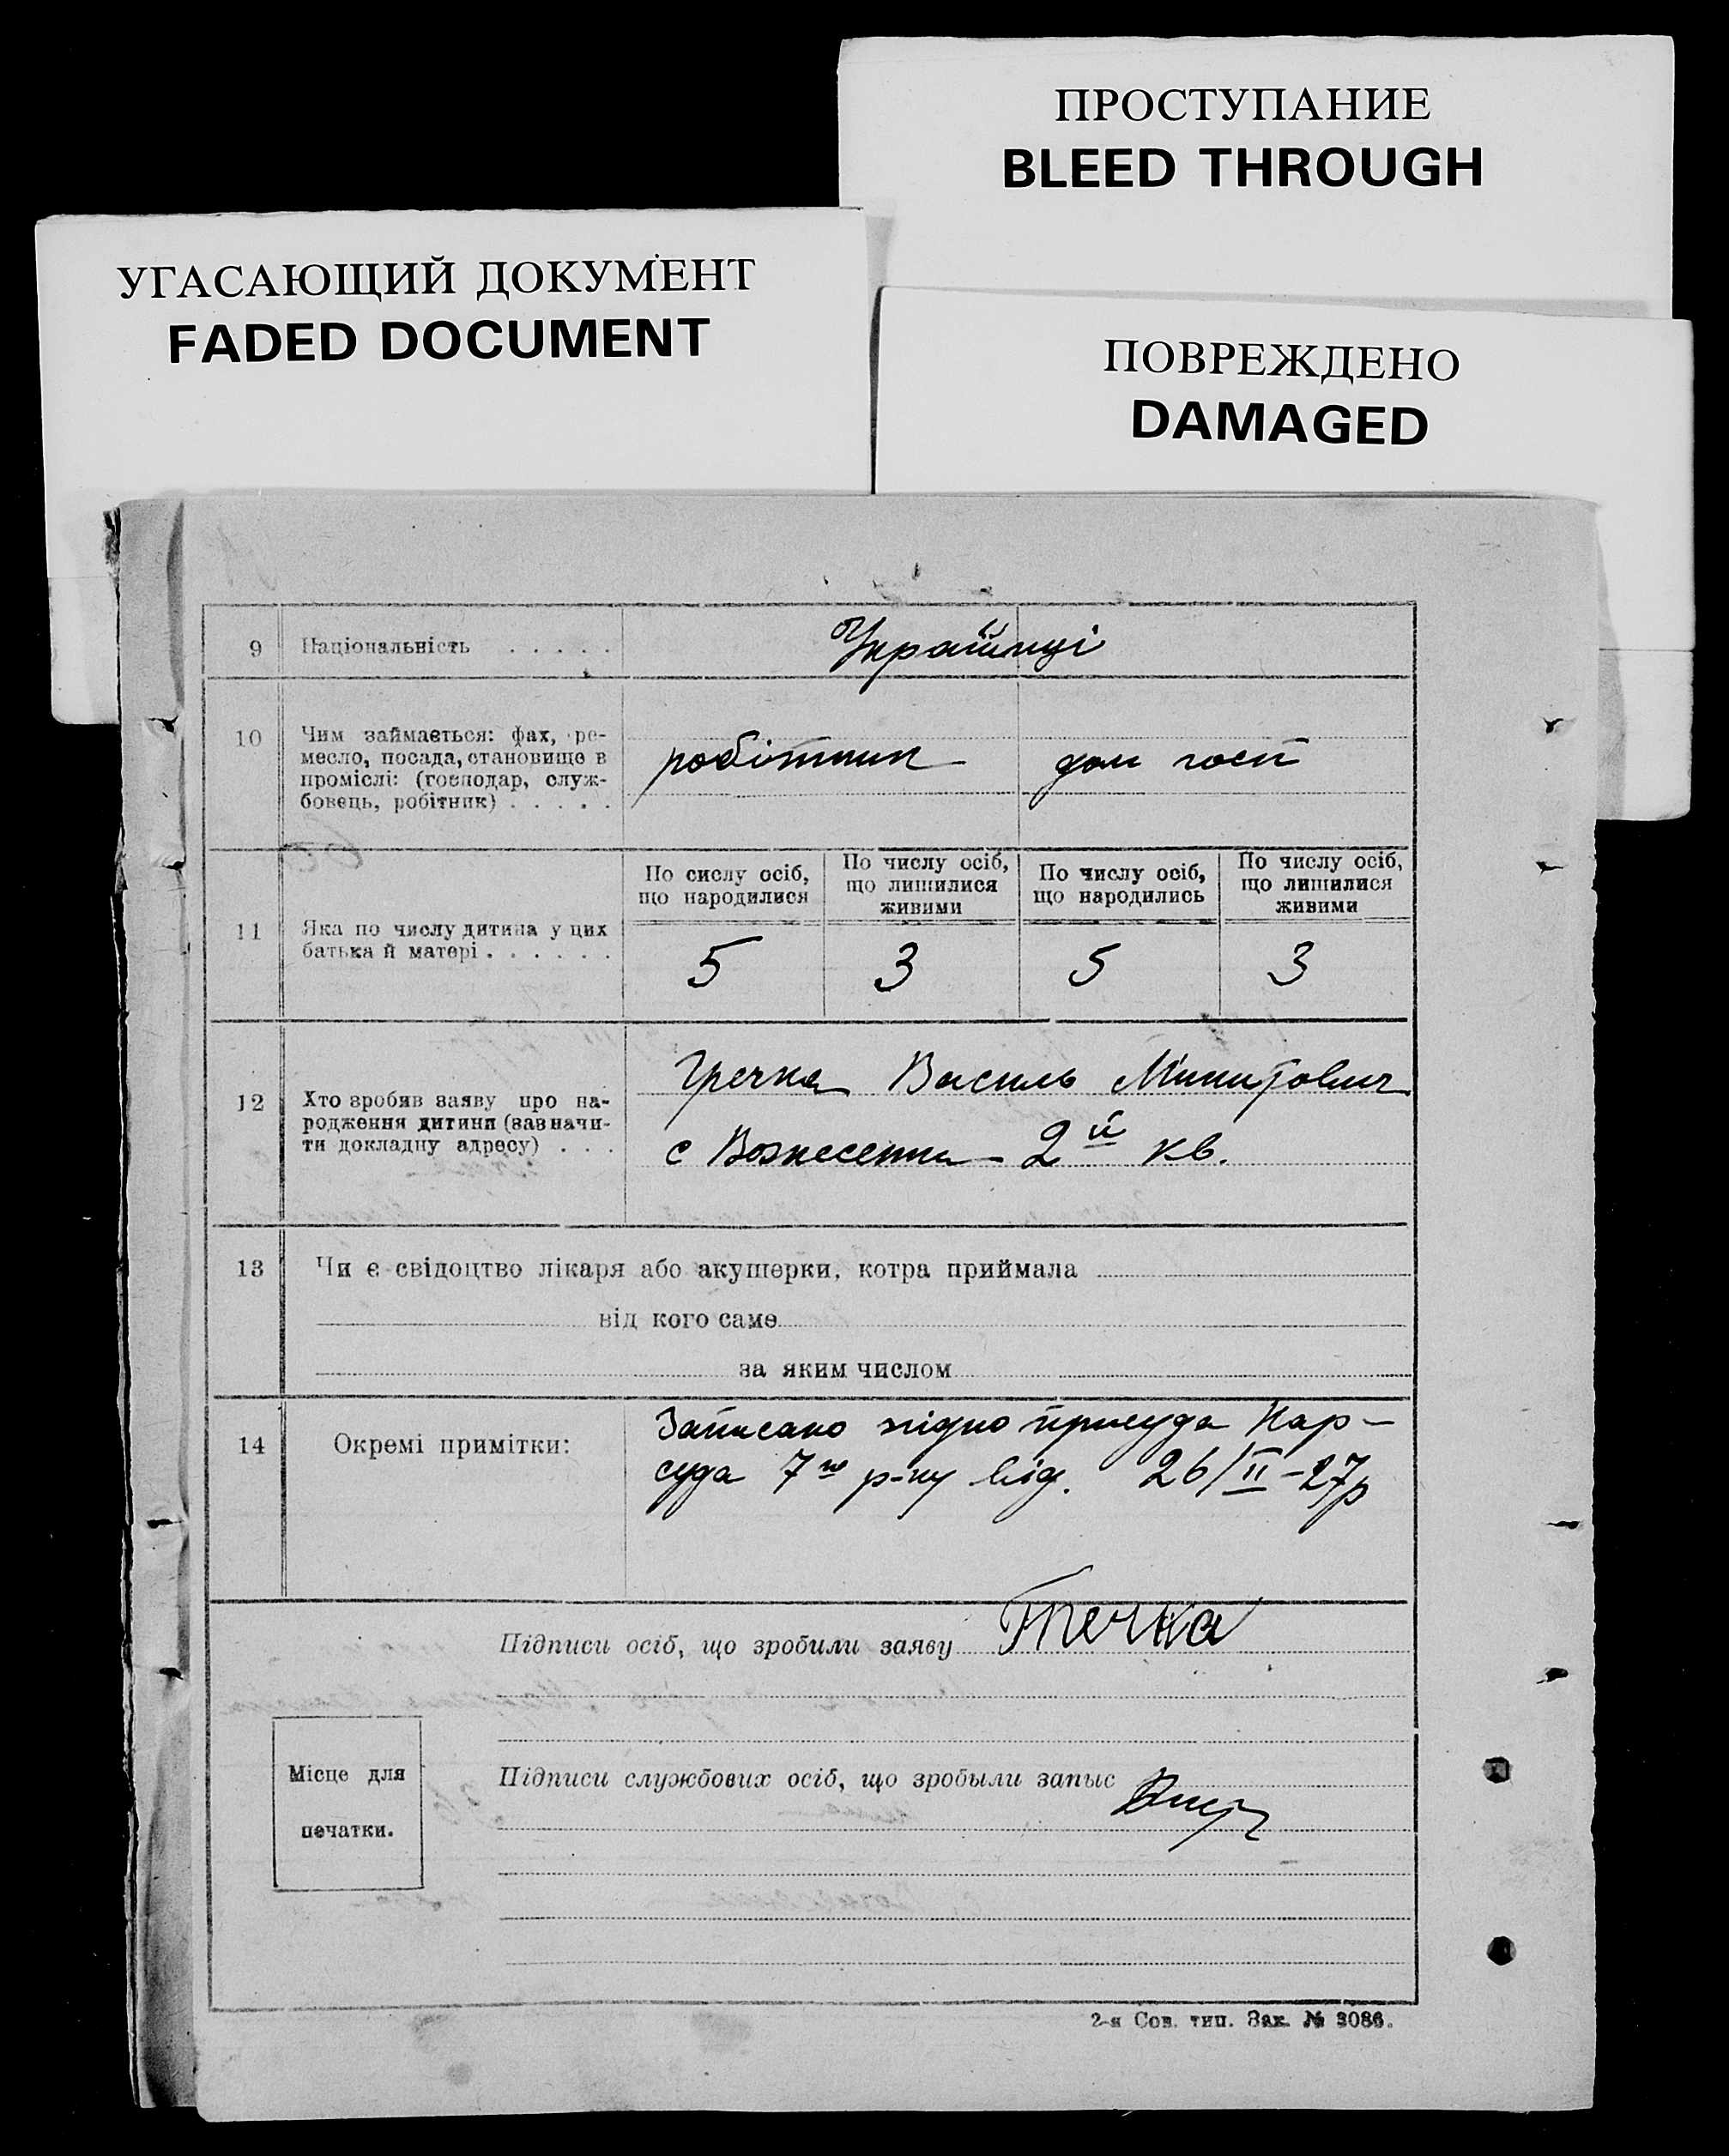 ПРОСТУПАНИЕ
BLEED THROUGH
УГАСАЮЩИЙ ДОКУМЕНТ
FADED DOCUMENT
ПОВРЕЖДЕНО
DAMAGED
9 Національність . . . . . Українці
10 Чим займається: фах, ре-
месло, посада, становище в
промислі: (господар, служ-
бовець, робітник) . . . . .
робітник дом госп
По сислу осіб,
що народилися
По числу осіб,
що лишилися
живими
По числу осіб,
що народились
По числу осіб,
що лишилися
живими
11 Яка по числу дитина у цих
батька й матері . . . . . .
5 3 5 3
12 Хто зробив заяву про на-
родження дитини (зазначи-
ти докладну адресу) . . .
Гречка Василь Микитович
с Вознесенка – 2й кв.
13 Чи є свідоцтво лікаря або акушерки, котра приймала
від кого саме
за яким числом
14 Окремі примітки:
Записано згідно присуда Нар-
суда 7го р-ну від. 26/II–27р
Підписи осіб, що зробили заяву Гречка
Підписи службових осіб, що зробыли запыс
Місце для
печатки.
2-я Сов. тип. Зак. № 3086.